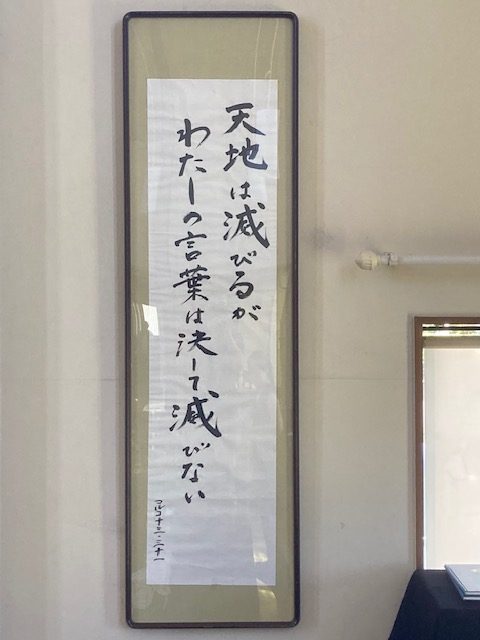 天地は滅びるが
わたしの言葉は決して、滅びない
マルコ十三・三十一